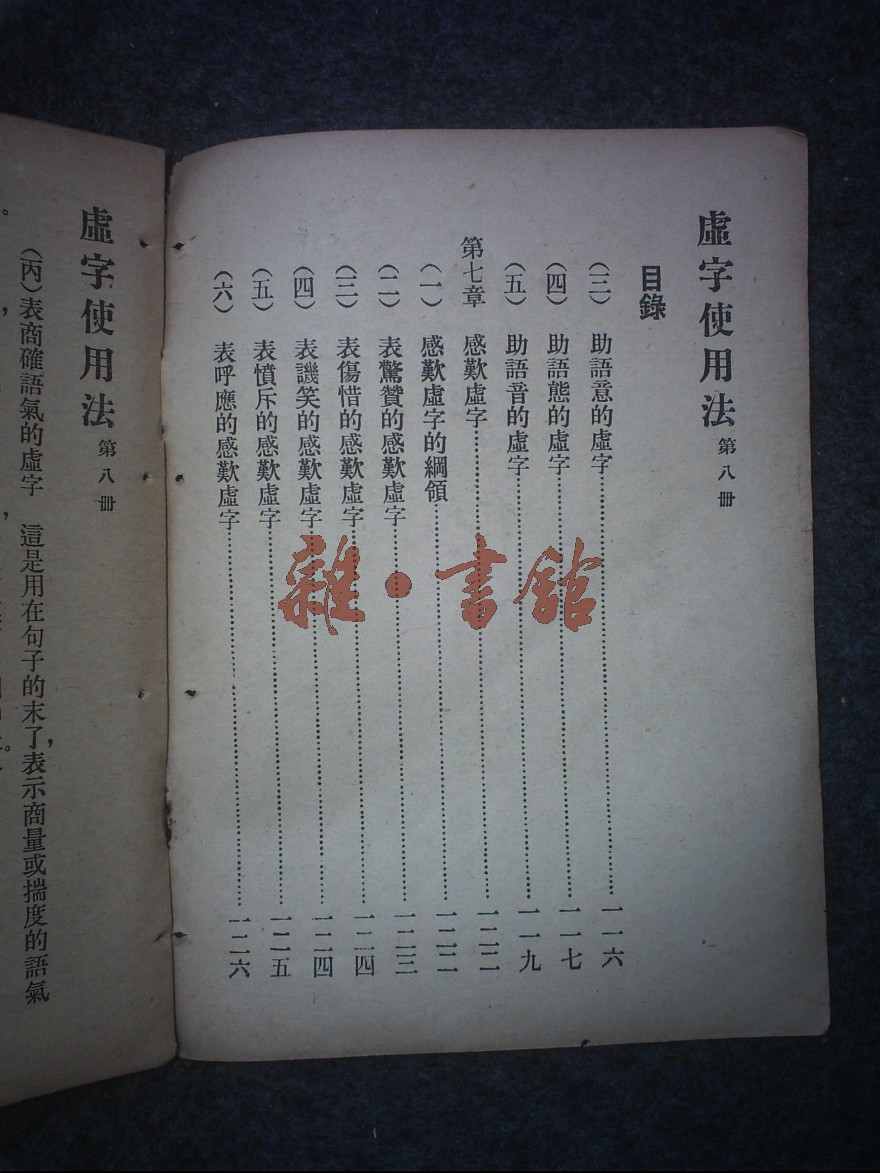 虛字使用法 第八冊
目錄
（三） 助語意的虛字……一一六
（四） 助語態的虛字……一一七
（五） 助語音的虛字……一一九
第七章 感歎虛字……一二二
（一） 感歎虛字的綱領……一二二
（二） 表驚贊的感歎虛字……一二三
（三） 表傷惜的感歎虛字……一二四
（四） 表譏笑的感歎虛字……一二四
（五） 表憤斥的感歎虛字……一二五
（六） 表呼應的感歎虛字……一二六
雜·書館
虛字使用法 第八冊
（丙）表商確語氣的虛字 這是用在句子的末了，表示商量或揣度的語氣